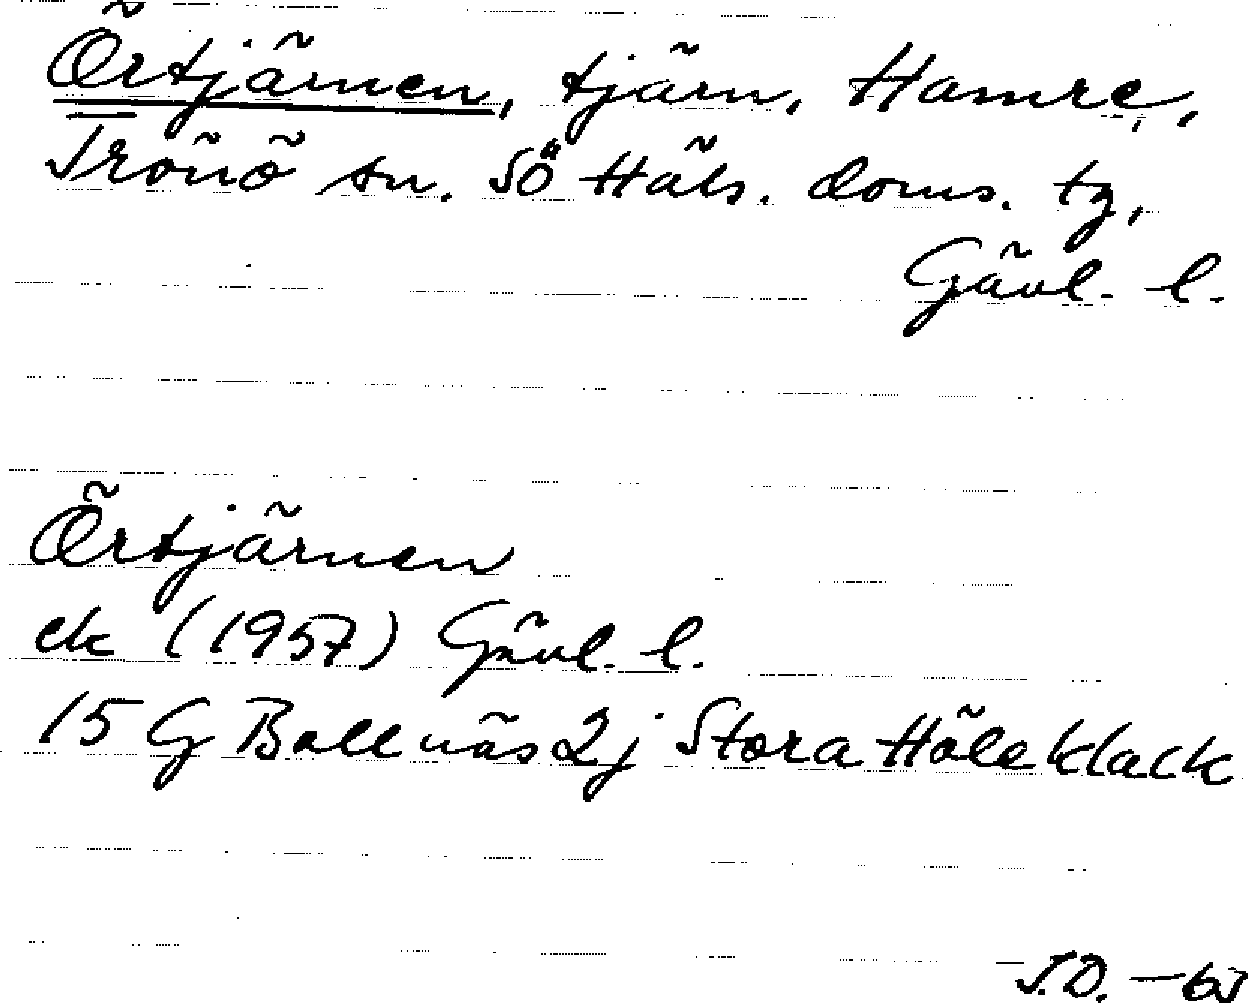 Örtjärnen, tjärn, Hamre,
Trönö sn. Sö Häls. doms. tg,
Gävl. l.
Örtjärnen
ek (1957) Gävl. l.
15 G Bollnäs 2j Stora Hälleklack